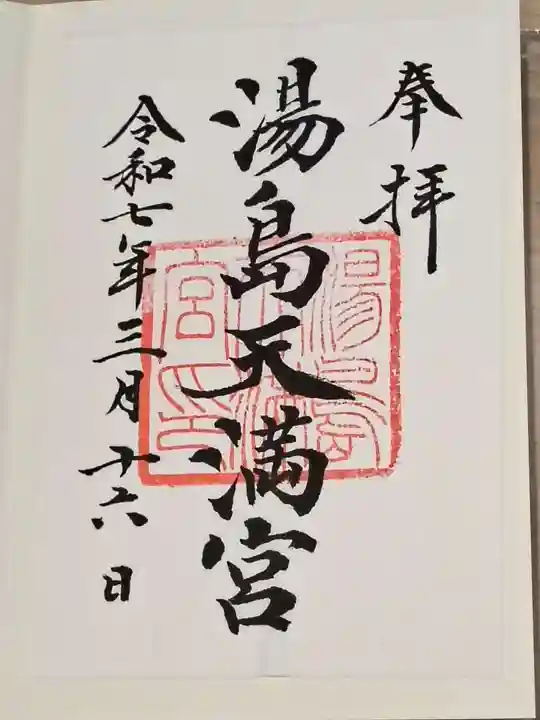 奉拝
湯島天満宮
令和七年三月十六日
湯島天満宮印